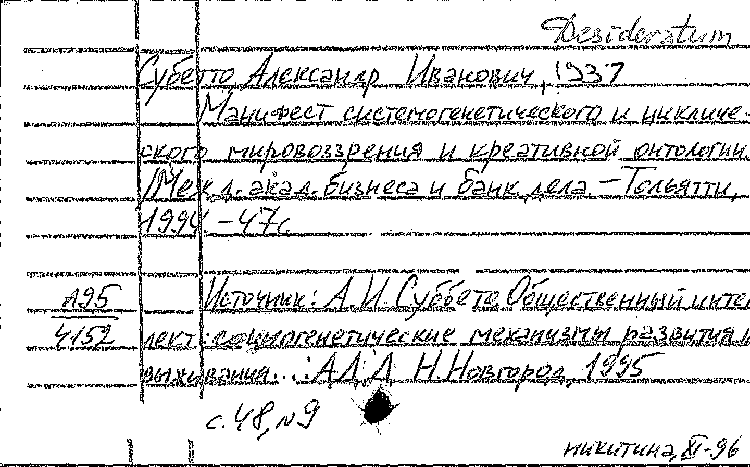 Desideratum
Субетто, Александр Иванович, 1937
Манифест системогенетического и цикличе-
ского мировоззрения и креативной онтологии.
/Межд. акад. бизнеса и банк. дела. – Тольятти,
1994. – 47 с.
А95 Источник: А.И. Суббето. Общественный инте-
4152 лект: социогенетические механизмы развития и
выживания...: АДД Н.Новгород, 1995
с. 48, №9
Никитина, XI-96